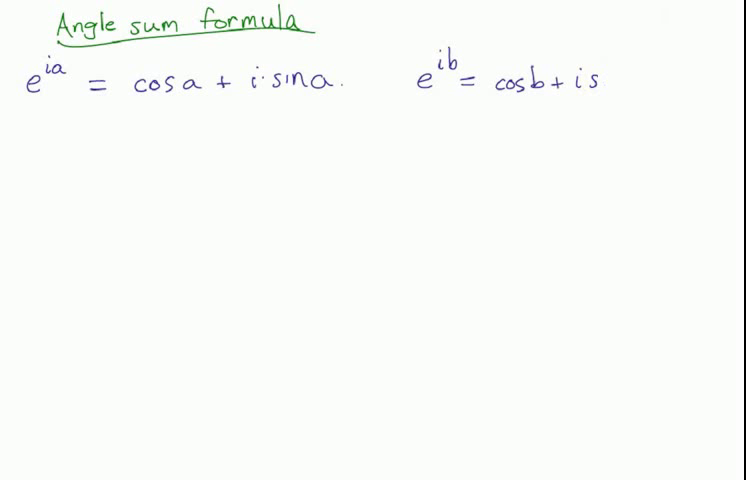 Angle sum formula
e^{ia} = cos a + i·sin a. e^{ib} = cos b + i s